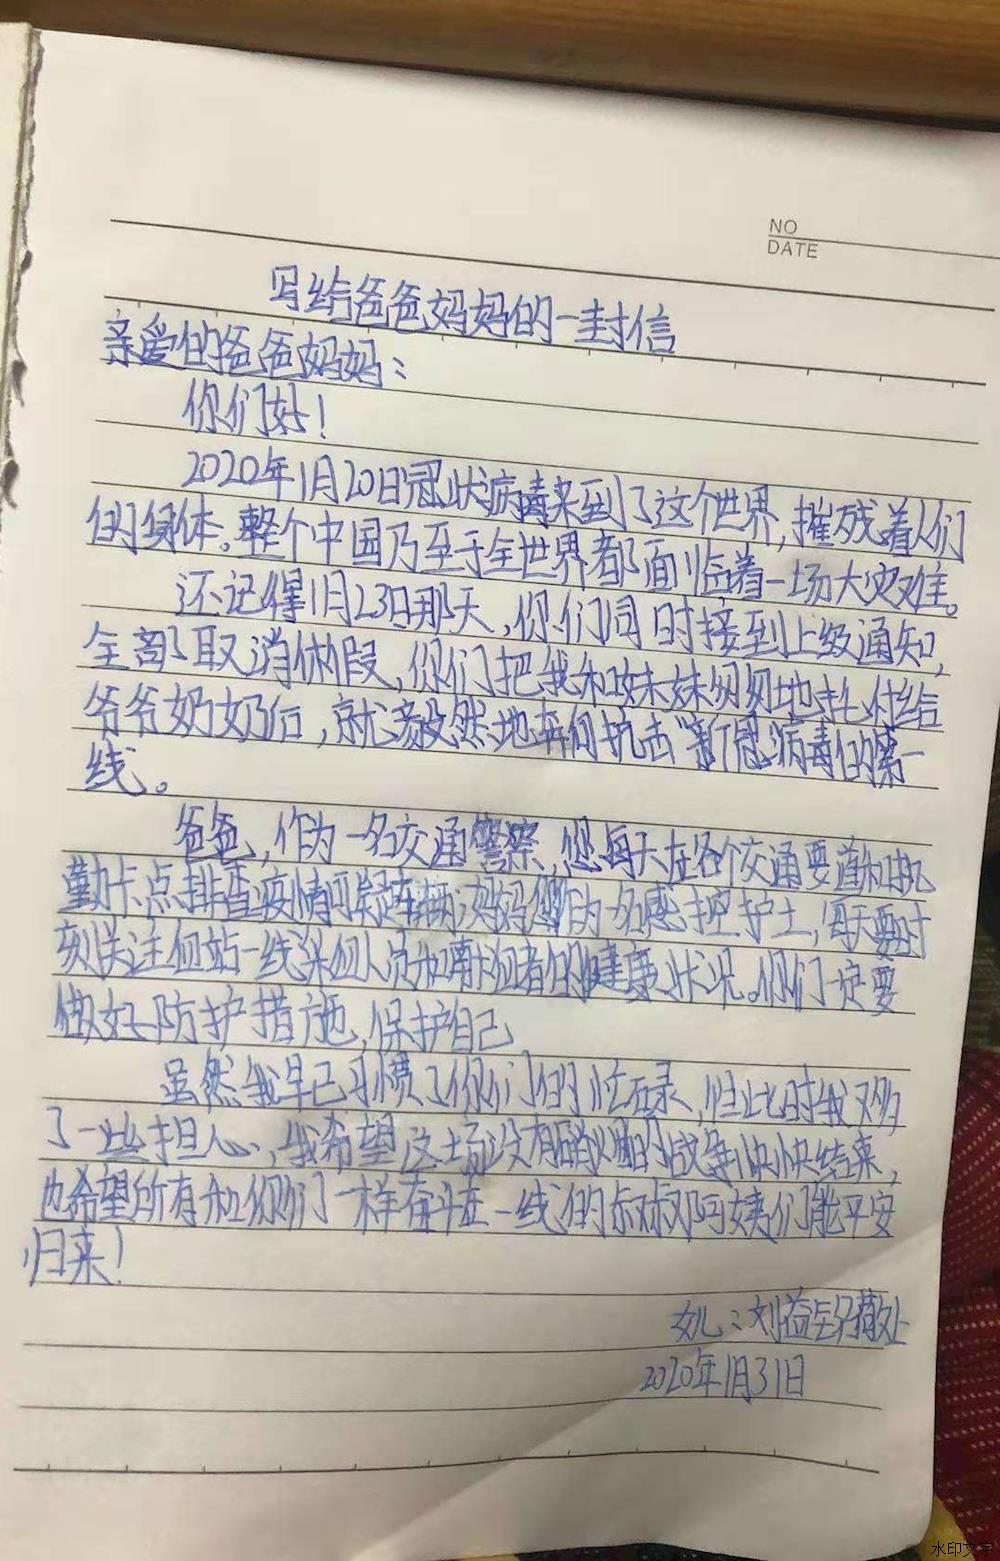 NO
DATE
写给爸爸妈妈的一封信
亲爱的爸爸妈妈：
你们好！
2020年1月20日冠状病毒来到了这个世界，摧残着人们
的身体。整个中国乃至于全世界都面临着一场大灾难。
还记得1月23日那天，你们同时接到上级通知，
全部取消休假，你们把我和妹妹匆匆地托付给
爷爷奶奶后，就毅然地奔向抗击“新冠病毒的第一
线。
爸爸，作为一名交通警察，您每天在各个交通要道和执
勤卡点排查疫情可疑车辆；妈妈，作为一名感控护士，每天要时
刻关注血站一线采血人员和献血者的健康状况。你们一定要
做好防护措施，保护自己
虽然我早已习惯了你们的忙碌，但此时我又多
了一些担心，我希望这场没有硝烟的战争快快结束，
也希望所有和你们一样奋斗在一线的叔叔阿姨们能平安
归来！
女儿：刘益
2020年1月31日
水印文字